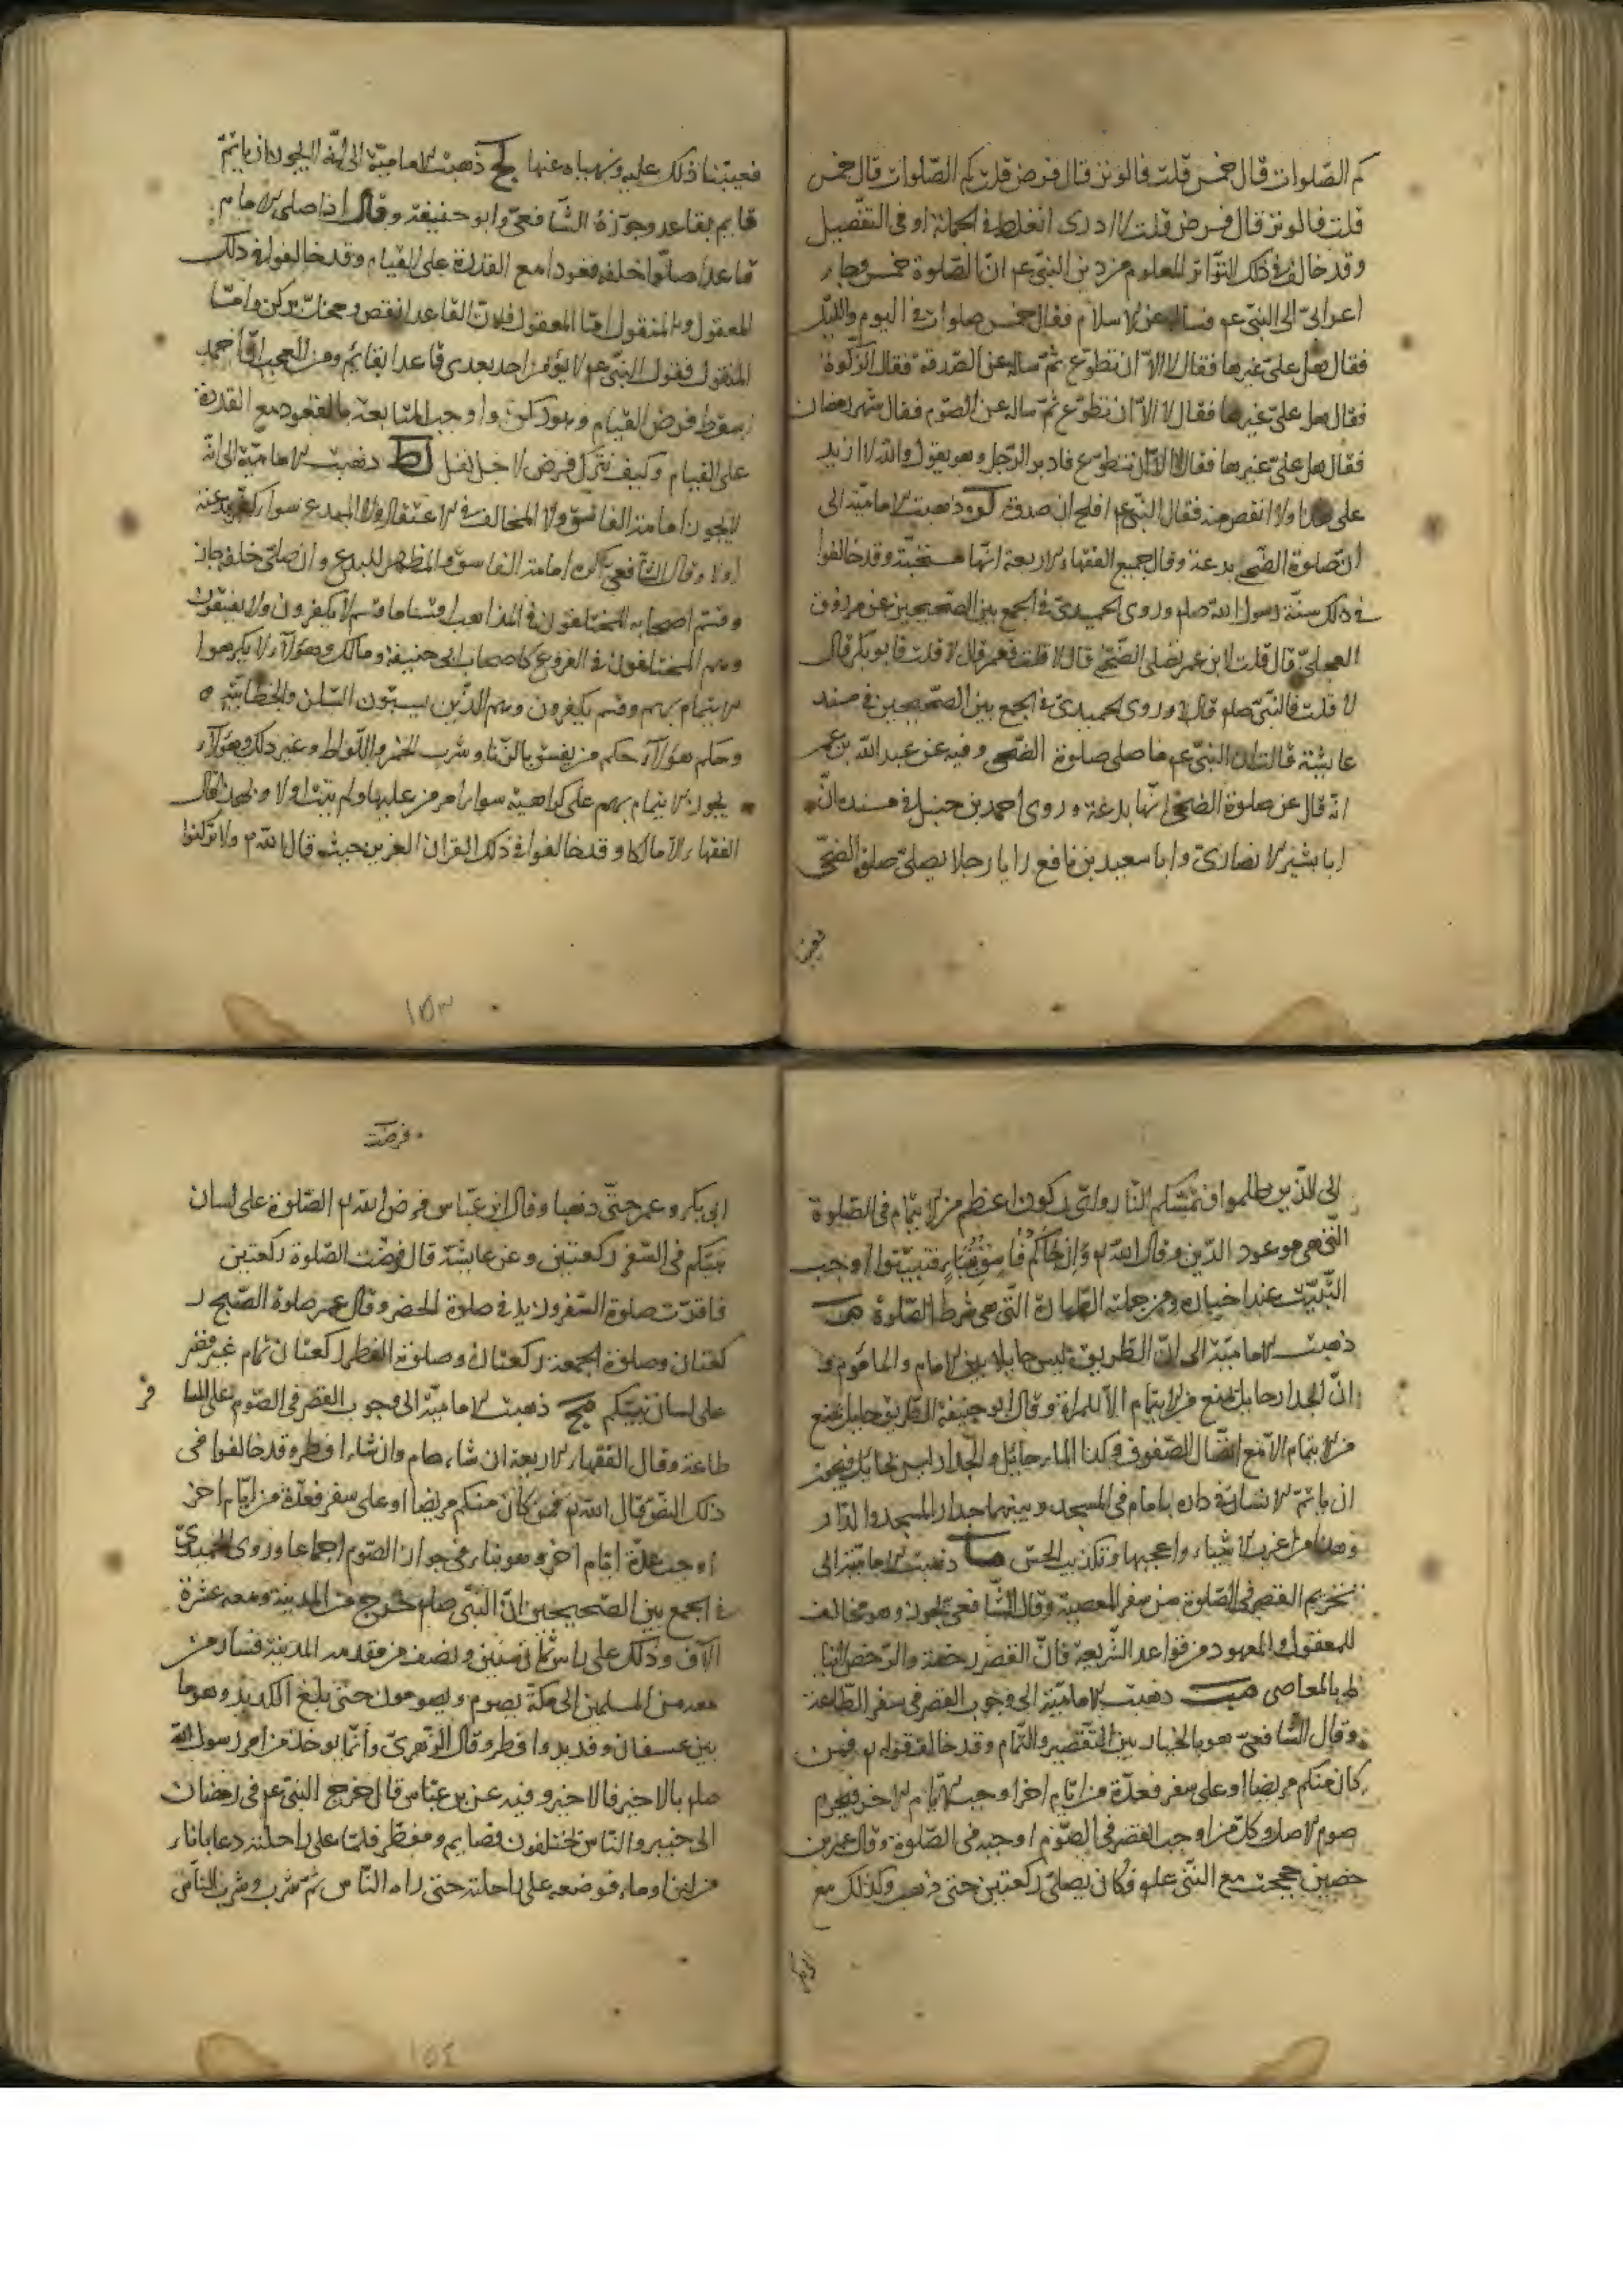 كم الصّلوات قال خمس قلت فالوتر قال فرض قلت كم الصّلوات قال خمس
قلت فالوتر قال فرض قلت لا ادرى اتغلط فى الجملة او فى التفصيل
وقد خالف فى ذلك التواتر المعلوم من دين النبىّ عم انّ الصّلوة خمس وجاء
اعرابىّ الى النبىّ عم فساله عن الاسلام فقال خمس صلوات فى اليوم والليلة
فقال هل علىّ غيرها فقال لا الاّ ان تطوّع ثمّ ساله عن الصّدقة فقال الزّكوة
فقال هل علىّ غيرها فقال لا الاّ ان تطوّع ثمّ ساله عن الصّوم فقال شهر رمضان
فقال هل علىّ غيرها فقال لا الاّ ان تطوّع فادبر الرّجل وهو يقول والله لا ازيد
على هذا ولا انقص منه فقال النبىّ عم افلح ان صدق ذهبت الاماميّة الى
انّ صلوة الضّحى بدعة وقال جميع الفقهاء الاربعة انّها مستحبّة وقد خالفوا
فى ذلك سنّة رسول الله صلم وروى الحميدىّ فى الجمع بين الصّحيحين عن
العجلىّ قال قلت لابن عمر تصلى الضّحى قال لا قلت فعمر قال لا قلت فابو بكر قال
لا قلت فالنّبىّ صلم قال لا وروى الحميدىّ فى الجمع بين الصّحيحين فى مسند
عايشة قالت انّ النبىّ عم ما صلى صلوة الضّحى وفيه عن عبد الله بن عمر
انّه قال عن صلوة الضّحى انّها بدعة وروى احمد بن حنبل فى مسنده انّ
ابا بشير الانصارىّ وابا سعيد بن نافع رايا رجلا يصلىّ صلوة الضّحى
فعيبنا
فعيبنا ذلك عليه ونهياه عنها لح ذهبت الاماميّة الى انّه لا يجوز ان ياتمّ
قايم بقاعد وجوّزه الشّافعىّ وابو حنيفة وقال اذا صلى الامام
قاعدا صلّوا خلفه قعودا مع القدرة على القيام وقد خالفوا فى ذلك
المعقول والمنقول امّا المعقول فلانّ القاعد انقص ومخلّ بركن وامّا
المنقول فقول النبىّ عم لا يؤمن احد بعدى قاعدا بقايم ومن العجب انّ احمد
اسقط فرض القيام وهو ركن واوجب المتابعة بالقعود مع القدرة
على القيام وكيف يترك فرض لاجل نفل لط ذهبت الاماميّة الى انّه
لا يجوز امامة الفاسق ولا المخالف فى الاعتقاد ولا المبدع سواء كفّر ببدعته
اولا وقال الشّافعىّ يكره امامة الفاسق والمظهر للبدع وان صلّى خلفه جاز
وقسّم اصحابه المختلفون فى المذاهب اقساما قسم لا يكفرون ولا يفسقون
وهم المختلفون فى الفروع كاصحاب ابى حنيفة ومالك وهؤلاء لا يكرهوا
الايتمام بهم وقسم يكفرون وهم الذّين يسبّون السّلف والخطابيّة
وحكم هؤلاء حكم من يفسق بالزّنا وشرب الخمر واللّواط وغير ذلك وهؤلاء
يجوز الايتمام بهم على كراهية سواء امر من عليها ولم يتب اولا وبهذا قال
الفقهاء الاّ مالكا وقد خالفوا فى ذلك القران العزيز حيث قال الله تع ولا تركنوا
١٥٣
الى الذّين ظلموا فتمسّكم النّار واىّ ركون اعظم من الايتمام فى الصّلوة
الّتى هى عمود الدّين وقال الله تع وان جاءكم فاسق بنباء فتبيّنوا اوجب
التّثبّت عند اخباره ومن جملته الطّهارة الّتى هى شرط الصّلوة
ذهبت الاماميّة الى انّ الطّريق ليس حايلا بين الامام والماموم و
انّ الجدار حايل يمنع من الايتمام الاّ للمراة وقال ابو حنيفة الطّريق حايل يمنع
من الايتمام الاّ مع اتّصال الصّفوف وكذا الماء حائل والجدار ليس بحايل فيجوز
ان ياتمّ الانسان فى داره بامام فى المسجد وبينهما جدار المسجد والدّار
وهذا من اغرب الاشياء واعجبها وتكذيب الحسّ ما ذهبت الاماميّة الى
تحريم القصر فى الصّلوة من سفر المعصية وقال الشّافعىّ يجوز وهو مخالف
للمعقول والمعهود من قواعد الشّريعة فانّ القصر رخصة والرّخص لا تنا
ط بالمعاصى مب ذهبت الاماميّة الى وجوب القصر فى سفر الطّاعة
وقال الشّافعىّ هو بالخيار بين التّقصير والتّمام وقد خالف قوله تع فمن
كان منكم مريضا او على سفر فعدّة من ايّام اخر اوجب الايّام الاخر فيحرم
صوم الاصل وكلّ من اوجب القصر فى الصّوم اوجبه فى الصّلوة وقال عمر بن
حصين حججت مع النّبى صلم فكان يصلّى ركعتين حتى ذهب وكذلك مع
فرضت
ابى بكر وعمر حتىّ ذهبا وقال ابن عبّاس فرض الله تع الصّلوة على لسان
نبيّكم فى السّفر ركعتين وعن عايشة قال فرضت الصّلوة ركعتين
فاقرّت صلوة السّفر وزيد فى صلوة الحضر وقال عمر صلوة الصّبح ر
كعتان وصلوة الجمعة ركعتان وصلوة الفطر ركعتان تمام غير قصر
على لسان نبيّكم مج ذهبت الاماميّة الى وجوب القصر فى الصّوم على المسا
فر
طاعة وقال الفقهاء الاربعة ان شاء صام وان شاء افطر وقد خالفوا فى
ذلك النصّ قال الله تع فمن كان منكم مريضا او على سفر فعدّة من ايّام اخر
اوجب عدّة ايّام اخر وهو ينافى جواز الصّوم اجماعا وروى الحميدىّ
فى الجمع بين الصّحيحين انّ النّبى صلم خرج من المدينة ومعه عشرة
آلاف وذلك على راس ثمان سنين ونصف من مقدمه المدينة فسار من
معه من المسلمين الى مكّة يصوم ويصومون حتىّ بلغ الكديد وهو ما
بين عسفان وقديد وافطر وقال الزّهرىّ وانّما يوخذ من امر رسول الله
صلم بالاخير فالاخير وفيه عن ابن عبّاس قال خرج النبىّ عم فى رمضان
الى حنين والنّاس مختلفون فصايم ومفطر فلمّا على راحلته دعا باناء
من لبن او ماء فوضعه على راحلته حتىّ راه النّاس ثمّ شرب وشرب النّاس
١٥٤